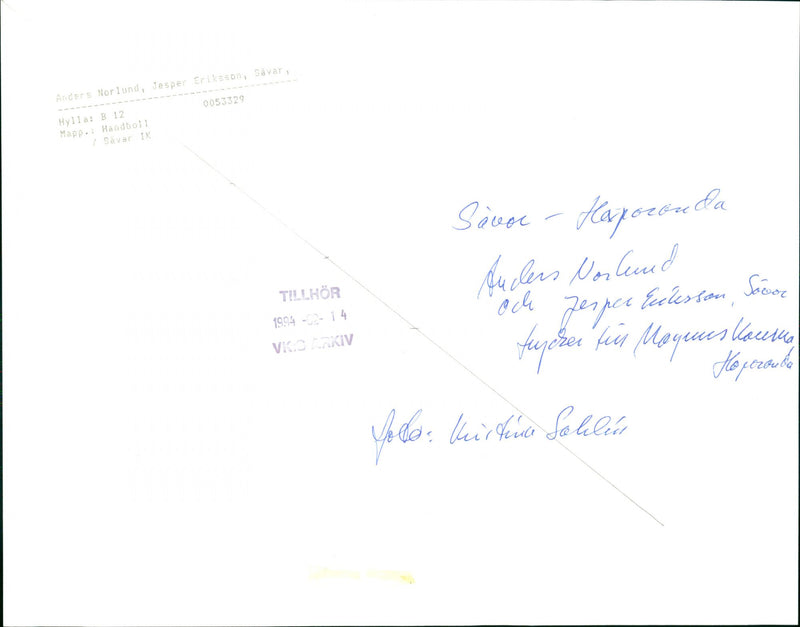 Anders Norlund, Jesper Eriksson, Sävar,
0053329
Hylla: B 12
Mapp.: Handboll
/ Sävar IK
Sävar - Haparanda
Anders Norlund
och Jesper Eriksson, Sävar
till Magnus
Haparanda
TILLHÖR
1994 -02- 14
VK:S ARKIV
foto: Kristina Sahlin